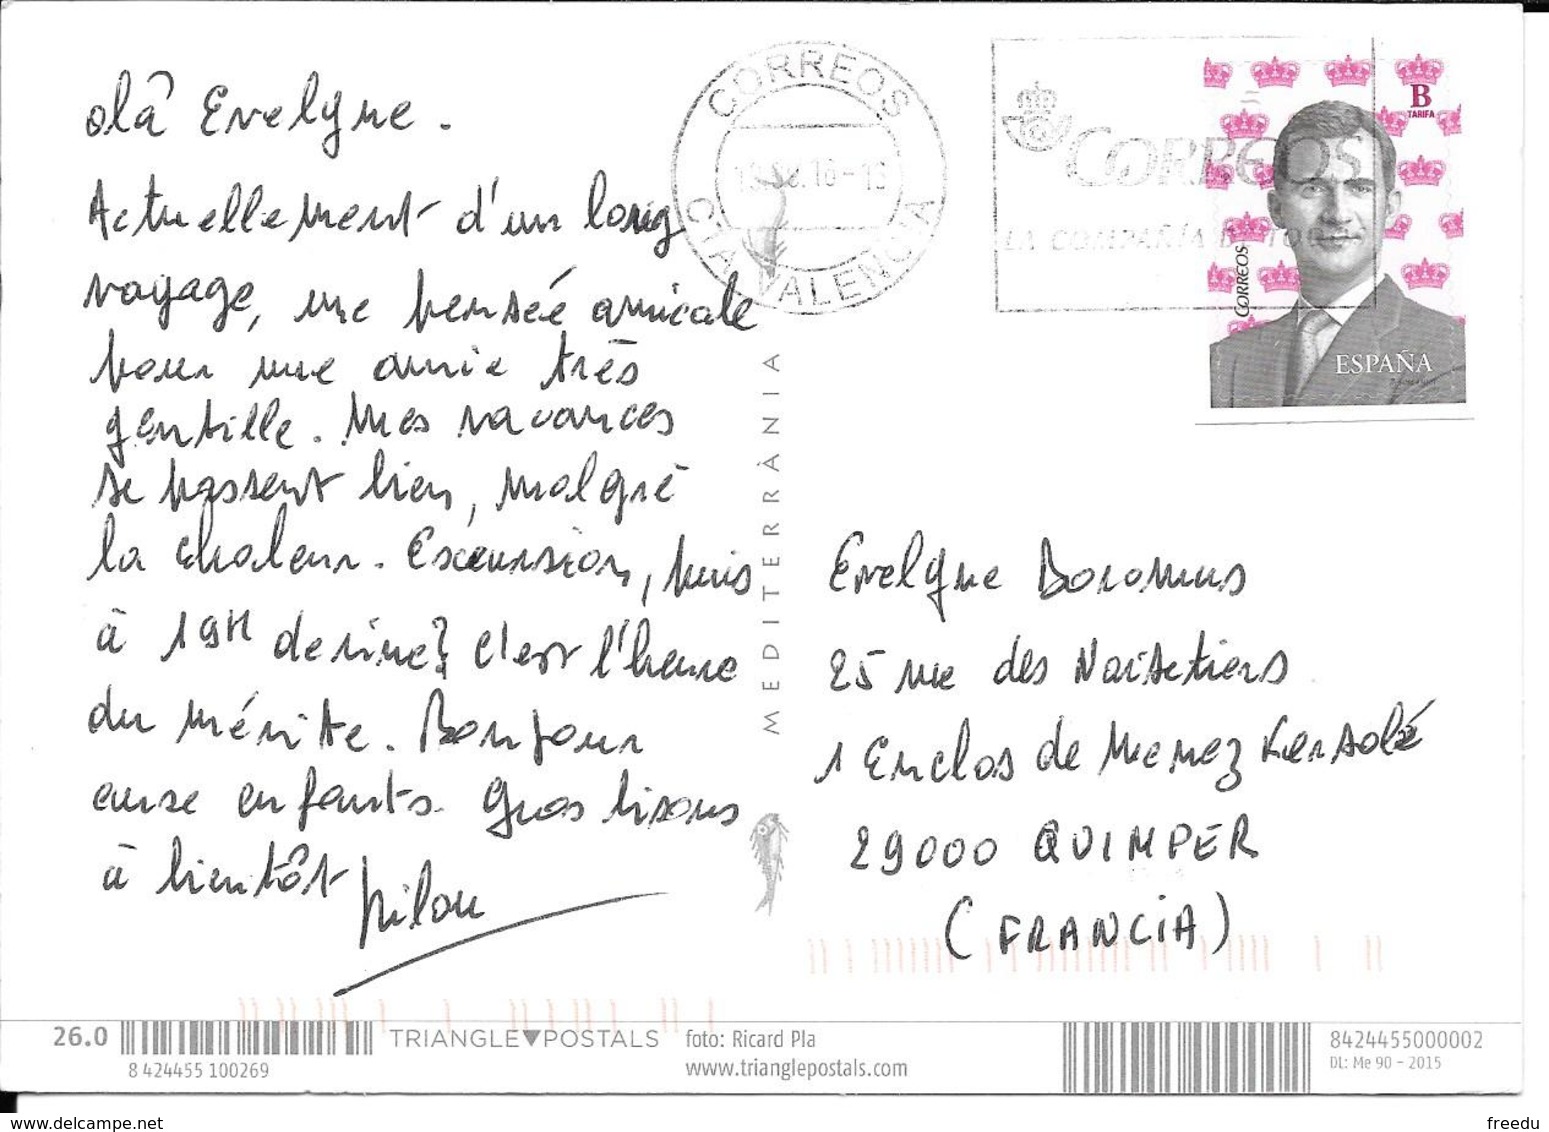 olà Evelyne.
Actuellement d'un long
voyage, une pensée amicale
pour une amie très
gentille. Mes vacances
se passent bien, malgré
la chaleur. Excursion, puis
à 19H devine? c'est l'heure
du mérite. Bonjour
aux enfants. Gros bisous
à bientôt
CORREOS
CTA VALENCIA
CORREOS
LA COMPAÑÍA
B
TARIFA
CORREOS
ESPAÑA
MEDITERRÀNIA
Evelyne
25 rue des
1 Enclos de Menez Kersolé
29000 QUIMPER
(FRANCIA)
26.0
8 424455 100269
TRIANGLE▼POSTALS
foto: Ricard Pla
www.trianglepostals.com
8424455000002
DL: Me 90 - 2015
www.delcampe.net
freedu